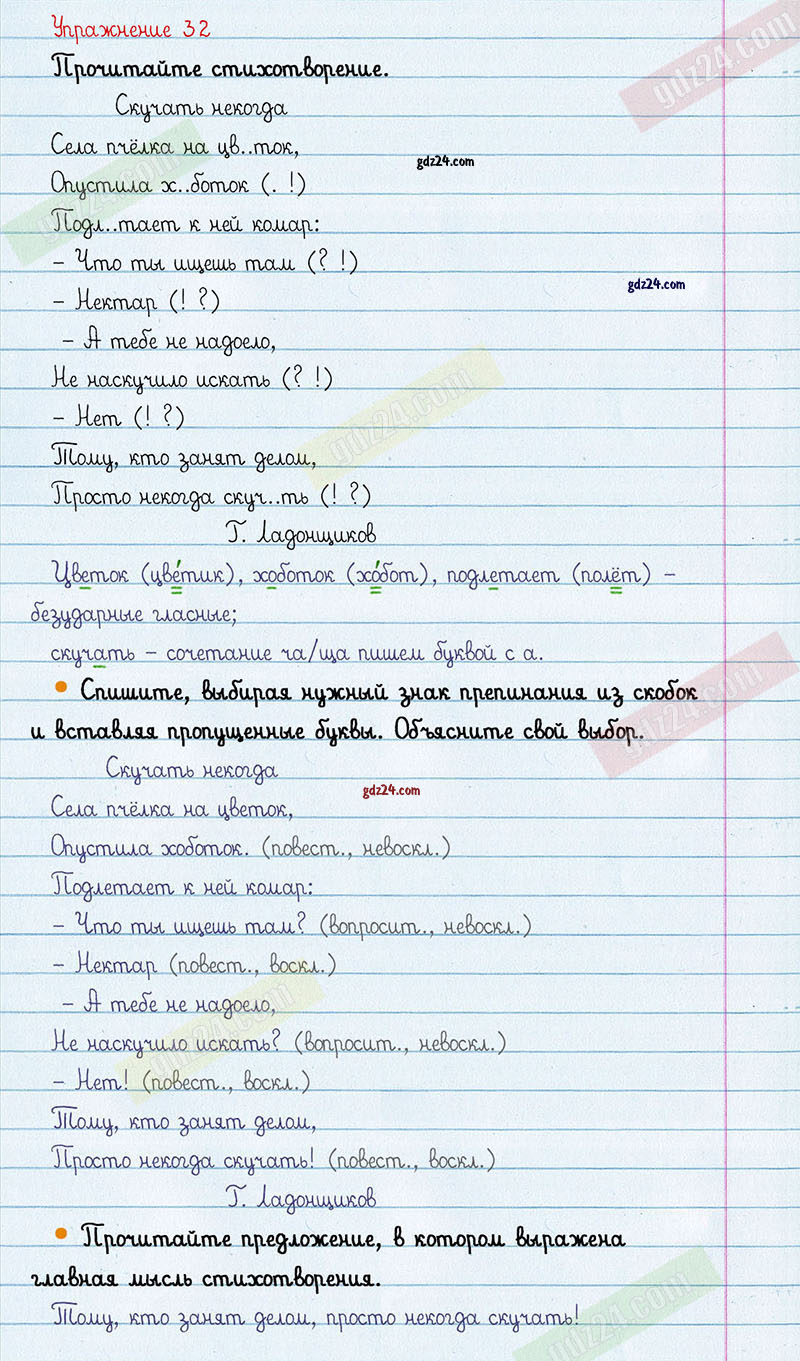 gdz24.com
Упражнение 32
Прочитайте стихотворение.
Скучать некогда
Села пчёлка на цв..ток,
gdz24.com
Опустила х..боток (. !)
gdz24.com
Подл..тает к ней комар:
– Что ты ищешь там (? !)
gdz24.com
– Нектар (! ?)
– А тебе не надоело,
Не наскучило искать (? !)
gdz24.com
– Нет (! ?)
Тому, кто занят делом,
Просто некогда скуч..ть (! ?)
Г. Ладонщиков
Цветок (цве́тик), хоботок (хо́бот), подлетает (полёт) –
безударные гласные;
скучать – сочетание ча/ща пишем буквой с а.
• Спишите, выбирая нужный знак препинания из скобок
gdz24.com
и вставляя пропущенные буквы. Объясните свой выбор.
Скучать некогда
gdz24.com
Села пчёлка на цветок,
Опустила хоботок. (повест., невоскл.)
Подлетает к ней комар:
– Что ты ищешь там? (вопросит., невоскл.)
– Нектар (повест., воскл.)
– А тебе не надоело,
gdz24.com
Не наскучило искать? (вопросит., невоскл.)
– Нет! (повест., воскл.)
Тому, кто занят делом,
Просто некогда скучать! (повест., воскл.)
Г. Ладонщиков
• Прочитайте предложение, в котором выражена
главная мысль стихотворения.
Тому, кто занят делом, просто некогда скучать!
gdz24.com